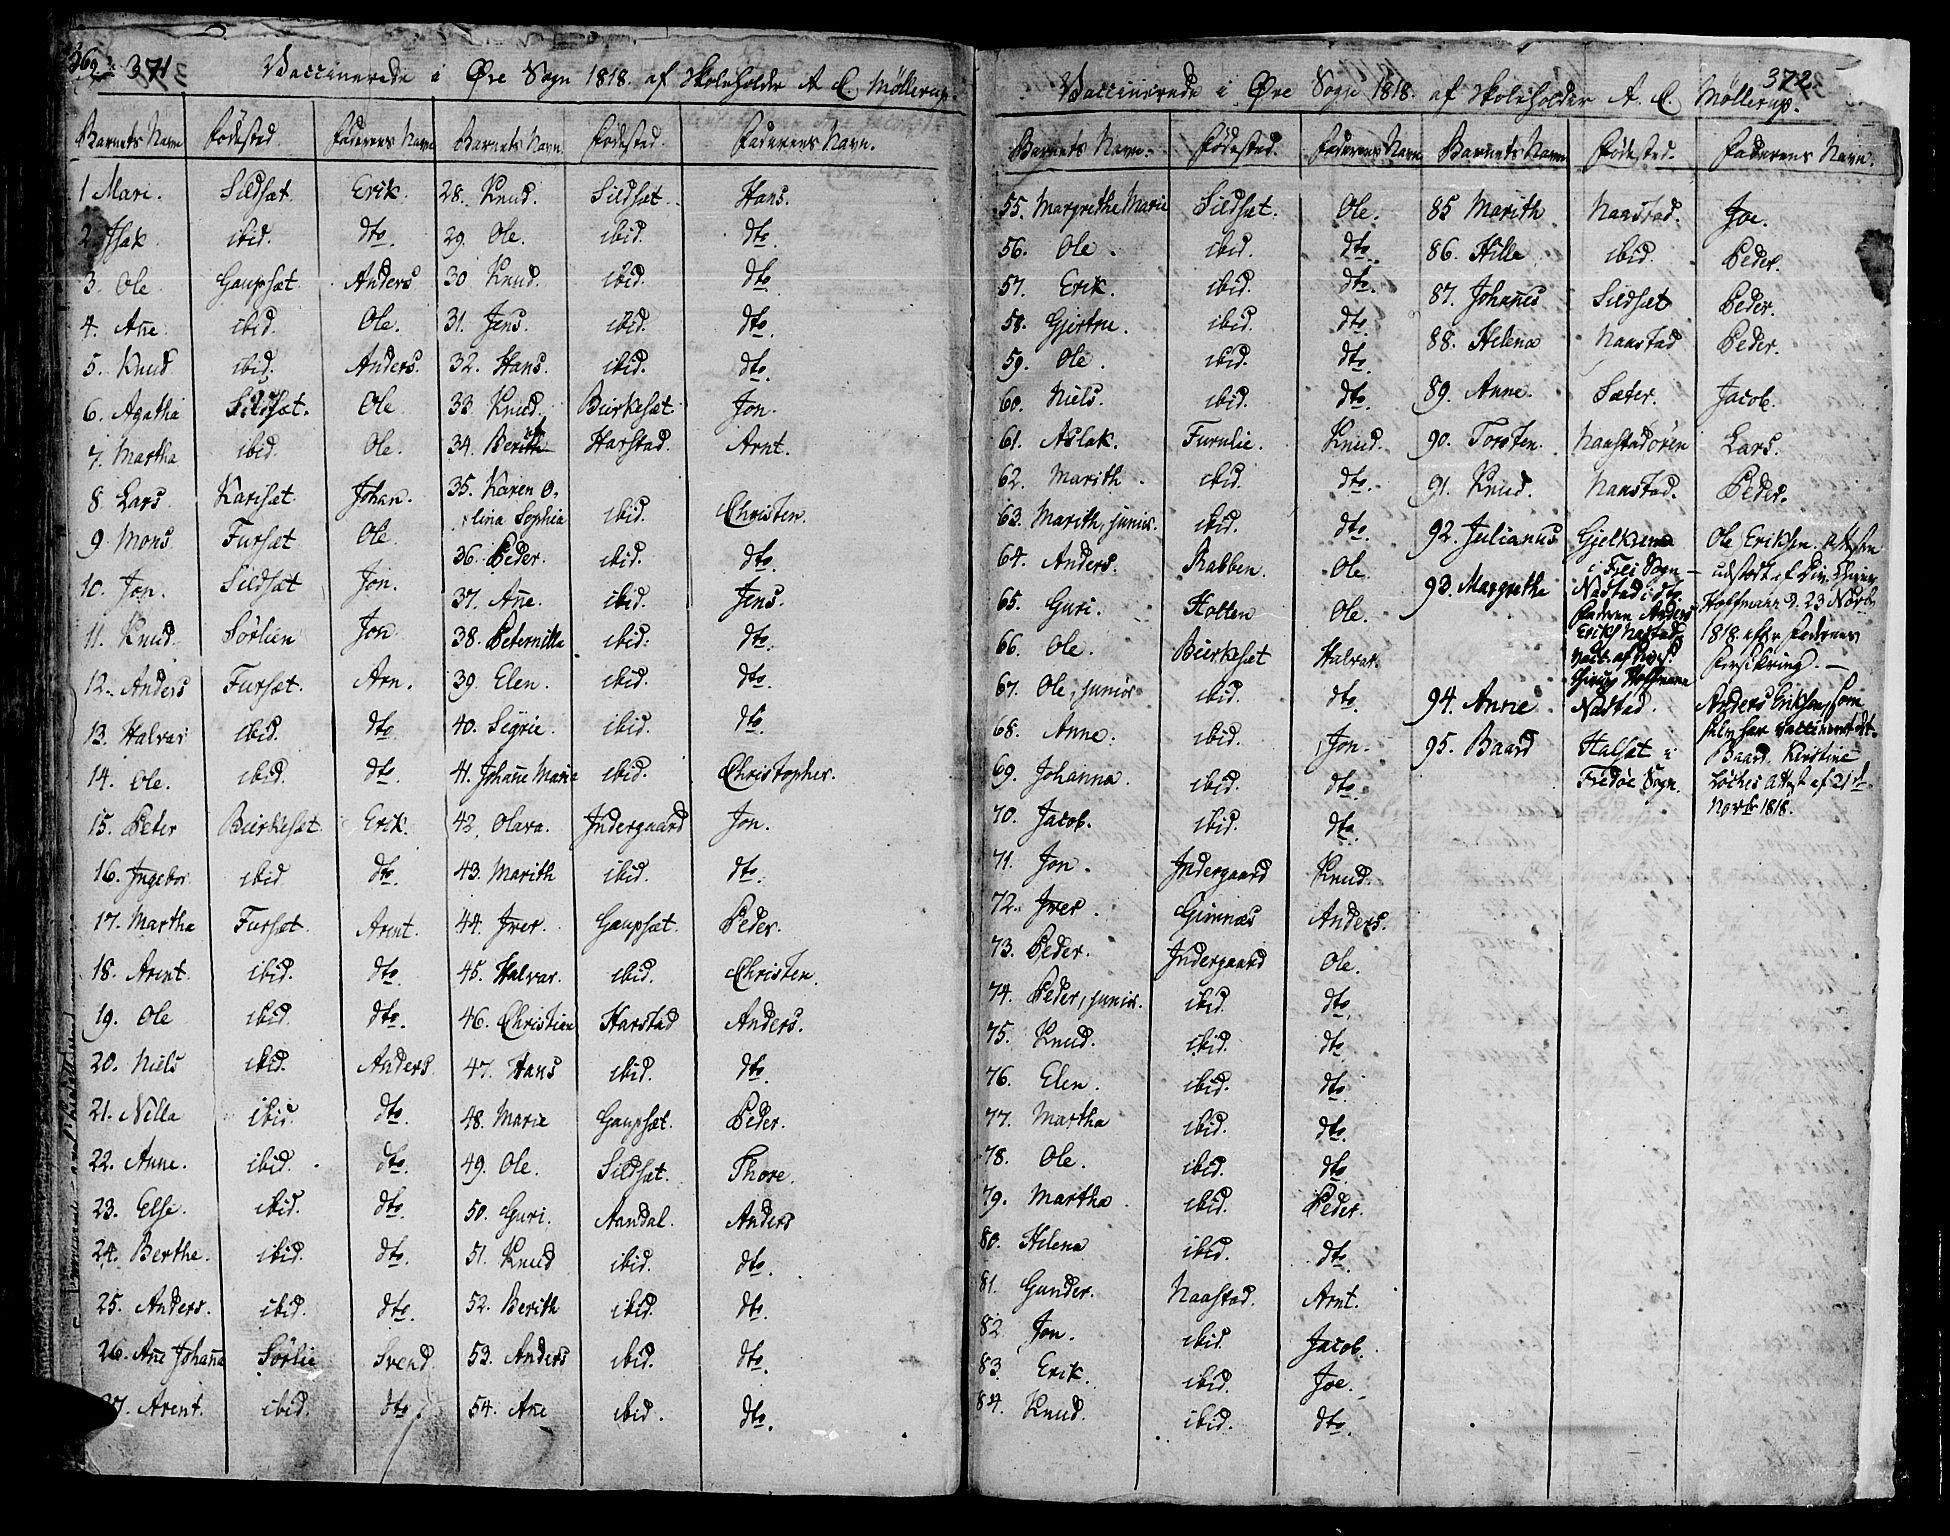 371
Vaccinerede i Øre Sogn 1818. af Skoleholder A C. Møllerup.
Barnets Navn Fødested. Faderens Navn Barnets Navn. Fødested. Faderens Navn.
1 Mari. Sildsæt. Erik. 28. Knud. Sildsæt. Hans.
2 Isak ibid. dto. 29. Ole. ibid. dto.
3. Ole Gaupsæt. Anders 30 Knud. ibid. dto.
4. Añe ibid. Ole. 31. Jens. ibid. dto.
5. Knud ibid. Anders. 32. Hans. ibid. dto.
6. Agatha Sildsæt. Ole 33. Knud. Biirkesæt Jon.
7. Martha ibid. Ole. 34. Berith Harstad. Arnt.
8 Lars Karisæt. Johan. 35. Karen O-
lina Sophia ibid. Christen.
9 Mons Fursæt Ole 36. Peder. ibid. dto.
10. Jon. Sildsæt Jon. 37. Añe. ibid. Jens.
11. Knud Sørlien Jon 38. Peternilla ibid. dto.
12. Anders Fursæt. Arn. 39. Elen. ibid. dto.
13. Halvar ibid. dto 40. Sigrie. ibid. dto.
14. Ole. ibid. dto 41. Johañe Marie ibid. Christopher.
15. Peter Biirkesæt Erik. 42. Olava. Indergaard Jon.
16. Ingebor ibid dto. 43. Marith ibid. dto.
17. Martha Fursæt. Arnt. 44. Iver. Gaupsæt. Peder.
18. Arent. ibid. dto. 45. Halvar. ibid. Christen.
19. Ole ibid. dto. 46. Christian Harstad Anders.
20. Niels ibid. Anders. 47. Hans ibid. dto.
21. Nella ibid. dto. 48. Marie Gaupsæt. Peder.
22. Anne. ibid. dto. 49. Ole. Sildsæt. Thore.
23. Else. ibid. dto. 50. Guri. Aandal. Anders
24. Berthe. ibid. dto. 51. Knud ibid. dto.
25. Anders. ibid. dto. 52. Berith ibid. dto.
26. Añe Johaña Sørlie Svend. 53. Anders ibid. dto.
27. Arent. ibid. dto. 54. Añe ibid. dto.
372.
Vaccinerede i Øre Sogn 1818. af Skoleholder A. C. Møllerup.
Barnets Navn. Fødested. Faderens Navn Barnets Navn Fødested. Faderens Navn.
55. Margrethe Marie Sildsæt. Ole. 85 Marith Naastad. Joe.
56. Ole. ibid. dto. 86. Hille ibid. Peder.
57. Erik. ibid. dto. 87. Johañes Sildsæt Peder.
58. Gjertru. ibid. dto. 88. Helena Naastad Peder.
59. Ole. ibid. dto.
60. Niels. ibid. dto. 89. Anne. Sæter. Jacob.
61. Aslak. Furulie. Knud. 90. Torsten. Naastadøren Lars.
62. Marith. ibid. dto. 91. Knud. Naastad. Peder.
63. Marith, junior. ibid. dto. 92. Julianus Gjelksem i Frei Sogn Ole Eriksen. Attesten
64. Anders. Rabben. Ole. 93. Margrethe Nastad i dto. udstædt af
65. Guri. Holten Ole. Faderen Anders Hoffmann d. 23 Novb.
66. Ole. Biirkesæt Halvar. Nastad 1818. efter Faderens
Forsikring.
67. Ole, junior ibid. dto. 94. Anne Nastad. Anders Eriksen, som
68. Anne. ibid. Jon. selv har vaccineret det.
69. Johanna ibid. dto. 95. Baard Halsæt i Baard. Kirstine
70. Jacob. ibid. dto. Fredøe Sogn. Attest af 21de
Novbr 1818.
71. Jon. Indergaard Knud.
72. Iver. Gimnæs Anders.
73. Peder. Indergaard Ole.
74. Peder, junior. ibid. dto.
75. Knud. ibid. dto.
76. Elen. ibid. dto.
77. Martha ibid. dto.
78. Ole. ibid. dto.
79. Martha. ibid. Peder.
80. Helena ibid. dto.
81. Gunder. Naastad. Arnt.
82 Jon. ibid. Jacob.
83. Erik. ibid. Joe.
84. Knud. ibid. dto.